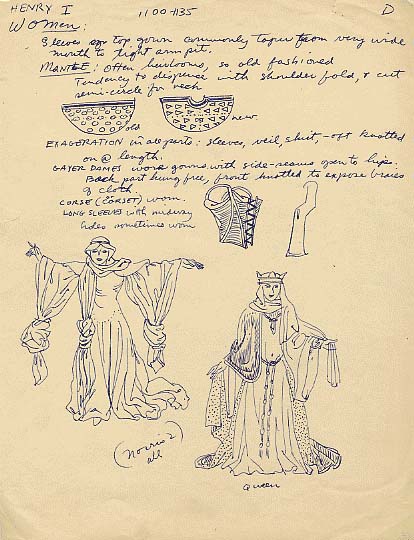 HENRY I 1100-1135 D
Women:
Sleeves on top gown commonly taper from very wide
mouth to tight arm pit.
MANTLE: Often heirlooms, so old fashioned
Tendency to dispense with shoulder fold, & cut
semi-circle for neck
old
new
EXAGERATION in all parts: sleeves, veil, skirt, - oft knotted
on @ length.
GAYER DAMES wore gowns with side-seams open to hips.
Back part hung free, front knotted to expose
of cloth.
CORSE (CORSET) worn.
LONG SLEEVES with midway
holes sometimes worn
(Norris 2)
all
Queen